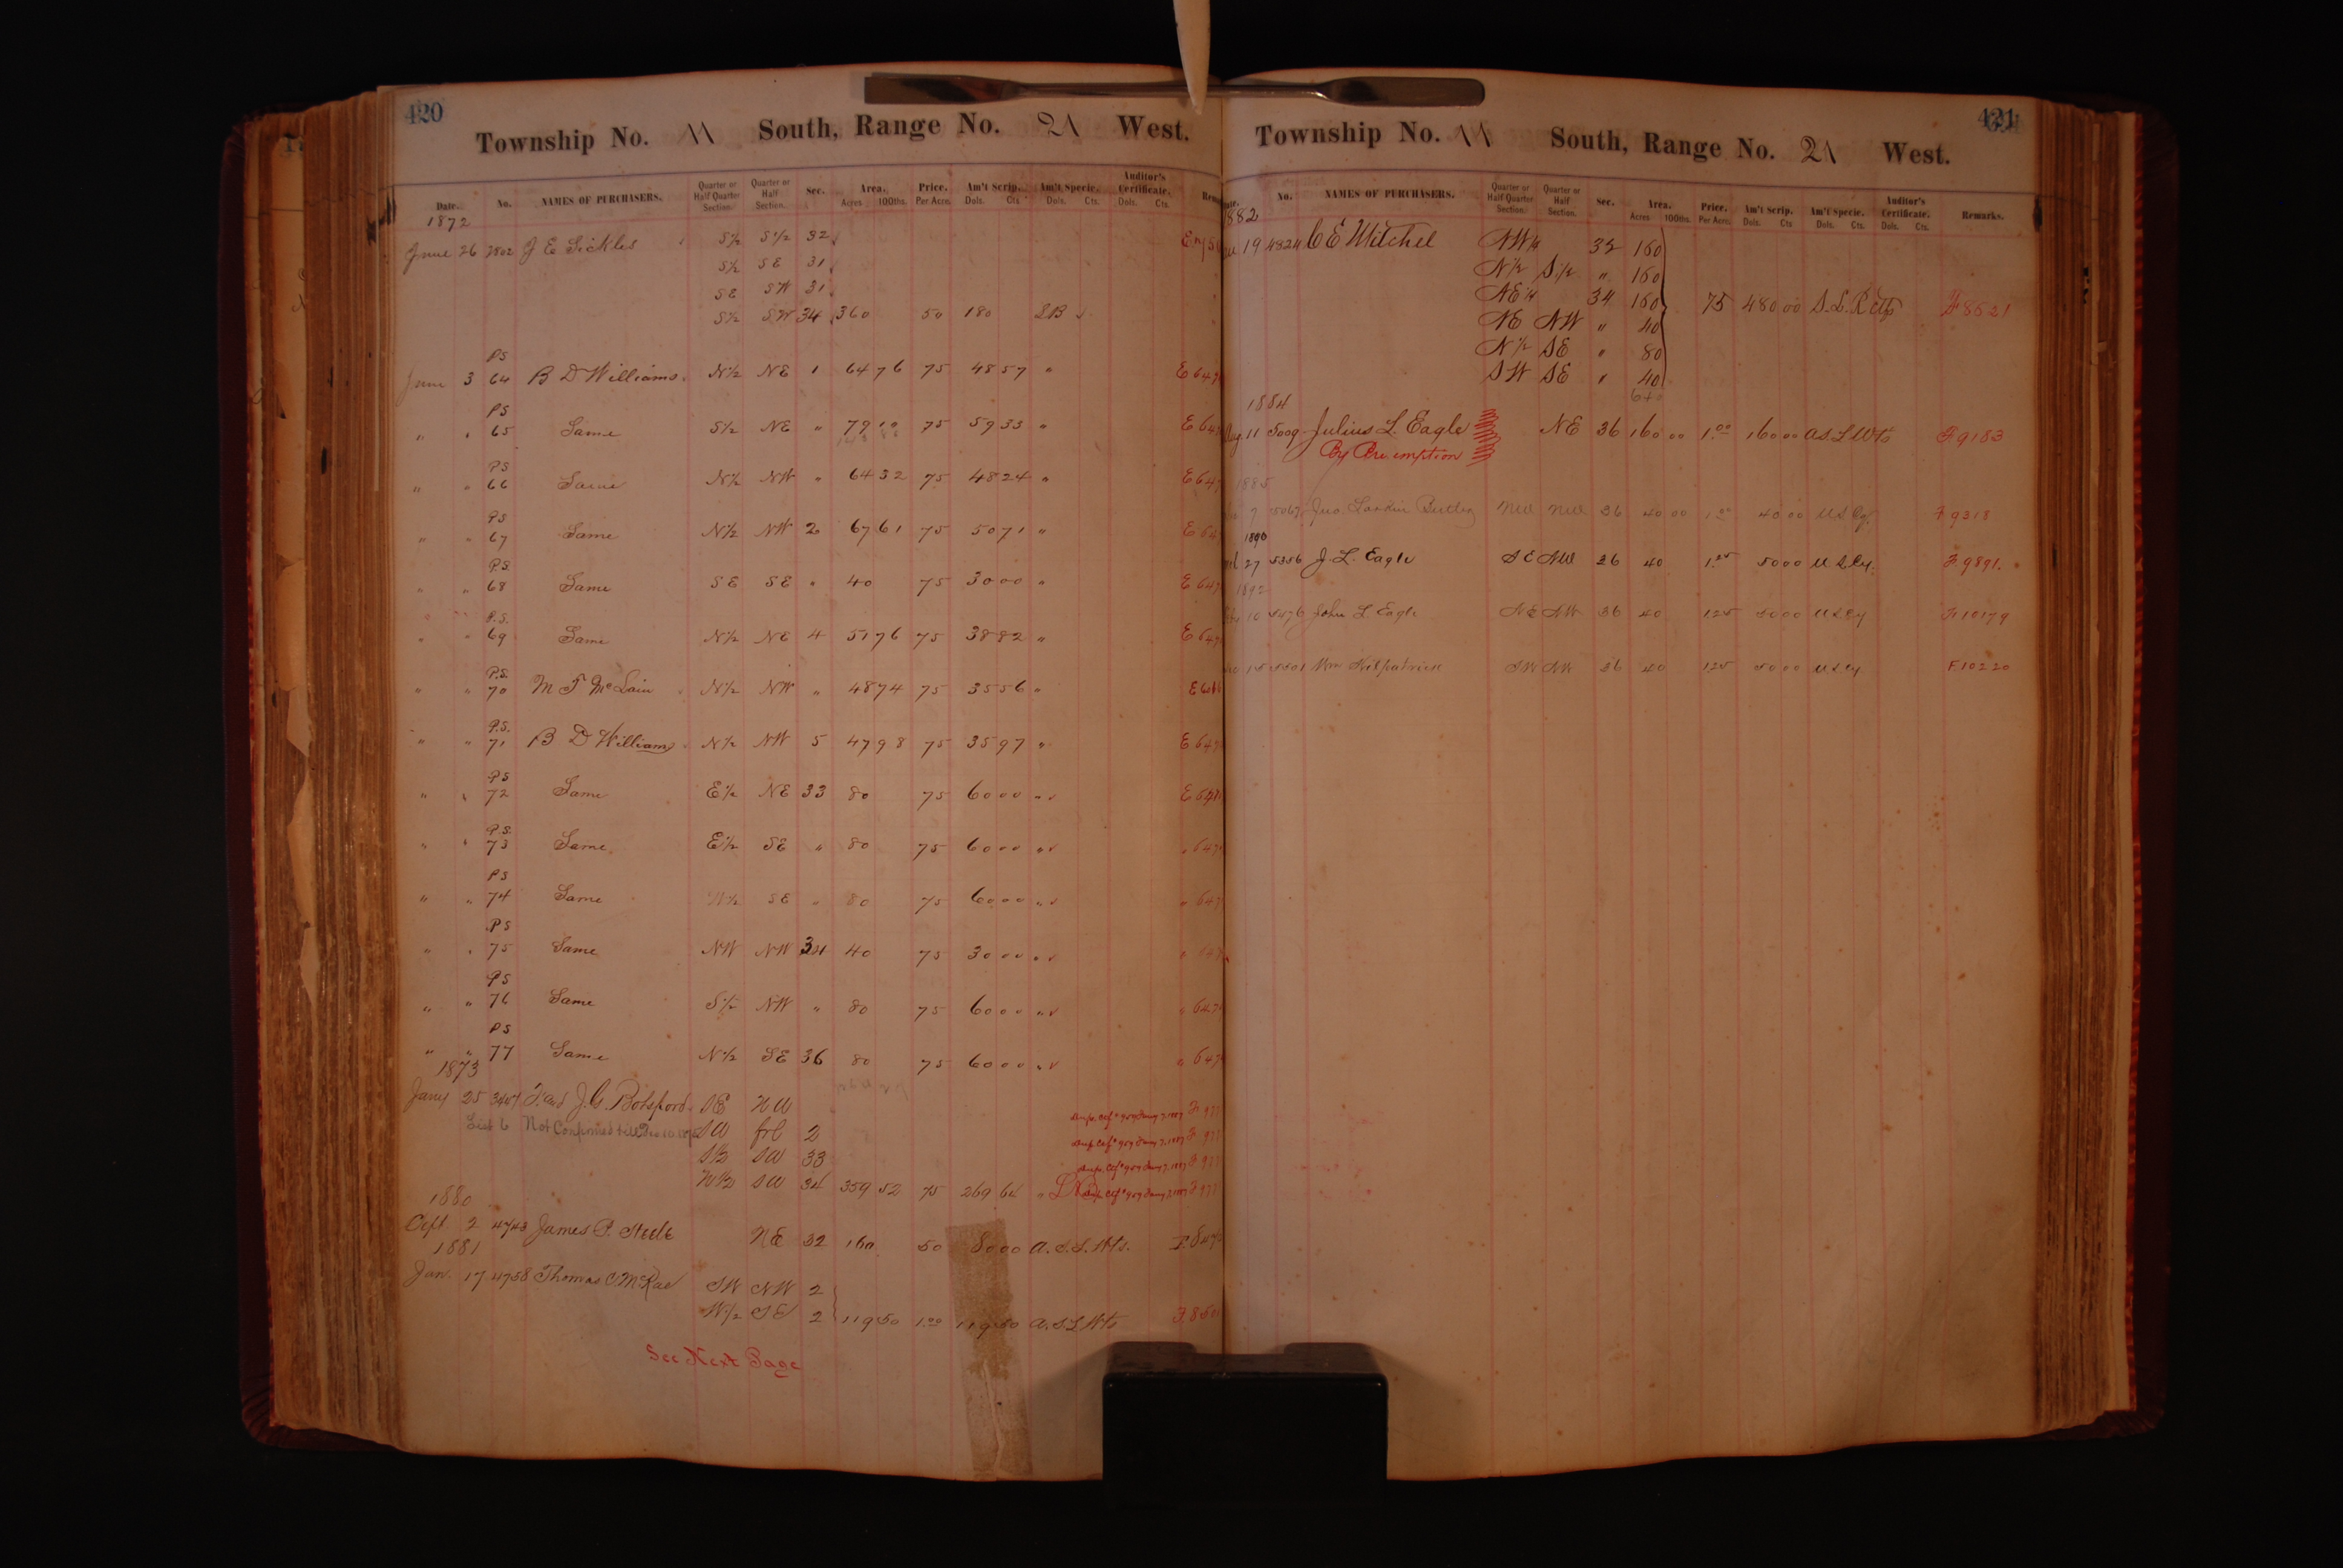 420
Township No. 11 South, Range No. 21 West.
Date. No. NAMES OF PURCHASERS. Quarter or Half Quarter Section. Quarter or Half Section. Sec. Area. Acres 100ths. Price. Per Acre. Am't Scrip. Dols. Cts. Am't Specie. Dols. Cts. Auditor's Certificate. Dols. Cts.
1872
June 26 2802 J E Sickles S½ S½ 32
S½ SE 31
SE SW 31
S½ SW 34 360 50 180 SB
PS
June 3 64 B D Williams N½ NE 1 64 76 75 48 57 "
PS
" " 65 Same S½ NE " 79 10 75 59 33 "
PS
" " 66 Same N½ NW " 64 32 75 48 24 "
PS
" " 67 Same N½ NW 2 67 61 75 50 71 "
P.S.
" " 68 Same SE SE " 40 75 30 00 "
P.S.
" " 69 Same N½ NE 4 51 76 75 38 82 "
P.S.
" " 70 M T McLain N½ NW " 48 74 75 35 56 "
P.S.
" " 71 B D Williams N½ NW 5 47 98 75 35 97 "
PS
" " 72 Same E½ NE 33 80 75 60 00 "
P.S.
" " 73 Same E½ SE " 80 75 60 00 "
PS
" " 74 Same W½ SE " 80 75 60 00 "
PS
" " 75 Same NW NW 34 40 75 30 00 "
PS
" " 76 Same S½ NW " 80 75 60 00 "
PS
" " 77 Same N½ SE 36 80 75 60 00 "
1873
Jany 25 J. G. Botsford SE NW
List 6 Not Confirmed till SW frl 2
S½ SW 33
W½ SW 34 359 52 75 269 64 "
1880
Sept 2 4743 James P. Steele NE 32 160 50 80 00 A.S.L.Wts.
1881
Jan. 17 4758 Thomas C McRae SW NW 2
W½ SE 2 119 50 1.00 119 50 A.S.L Wts
See Next Page
421
Township No. 11 South, Range No. 21 West.
No. NAMES OF PURCHASERS. Quarter or Half Quarter Section. Quarter or Half Section. Sec. Area. Acres 100ths. Price. Per Acre. Am't Scrip. Dols. Cts Am't Specie. Dols. Cts. Auditor's Certificate. Dols. Cts. Remarks.
1882
19 4824 C E Mitchel NW¼ 32 160
N½ S½ " 160
NE¼ 34 160 75 480 00 S.L.R F 8621
NE NW " 40
N½ SE " 80
SW SE " 40
640
1884
Aug. 11 5009 Julius L. Eagle NE 36 160 00 1.00 160 00 A.S.L Wts F 9183
By Pre emption
1885
7 5067 Jno. Larkin Butler NW NW 36 40 00 1.00 40 00 U S Cy. F 9318
1890
27 5356 J. L. Eagle SE NW 36 40 1.25 50 00 U S Cy. F. 9891.
1892
10 5476 John L. Eagle NE NW 36 40 1.25 50 00 U S Cy F 10179
15 5501 Wm Kilpatrick SW NW 36 40 1.25 50 00 U S Cy F 10220